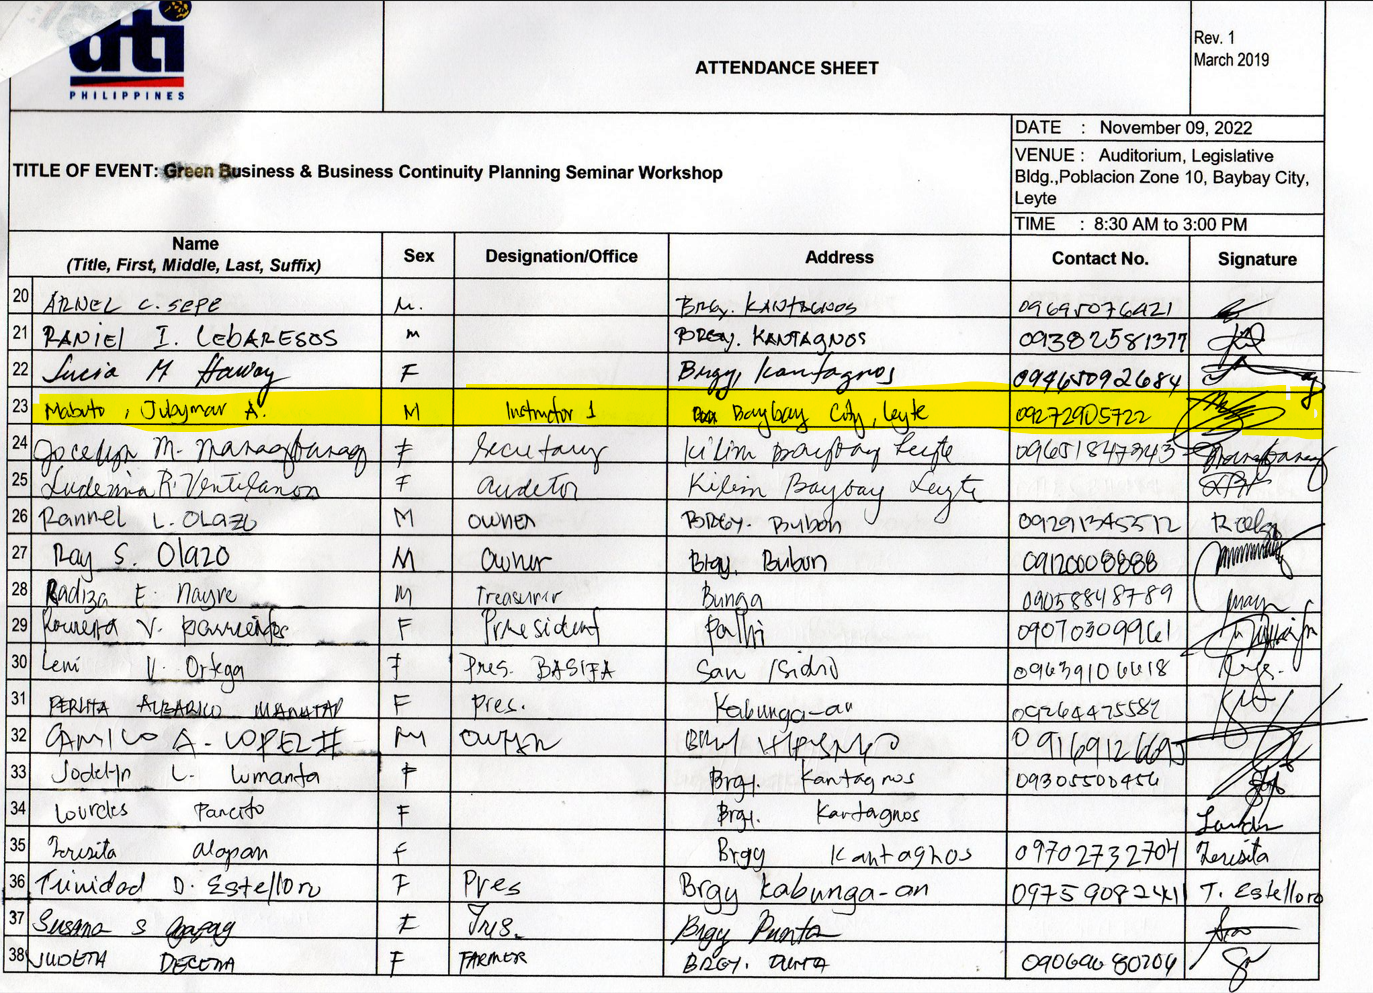 dti
PHILIPPINES
ATTENDANCE SHEET
Rev. 1
March 2019
TITLE OF EVENT: Green Business & Business Continuity Planning Seminar Workshop
DATE : November 09, 2022
VENUE : Auditorium, Legislative
Bldg.,Poblacion Zone 10, Baybay City,
Leyte
TIME : 8:30 AM to 3:00 PM
Name Sex Designation/Office Address Contact No. Signature
(Title, First, Middle, Last, Suffix)
20 ARNEL C. SEPE M. Brgy. KANTAGNOS 09695076921
21 RANIEL I. CEBARESOS M BRGY. KANTAGNOS 09382581377
22 Lucia M Haway F Brgy, Kantagnos 09465092684
23 Mabuto, Julbymar A. M Instructor 1 Baybay City, Leyte 09272905722
24 Jocelyn M. F Secretary Kilim Baybay Leyte 09651847343
25 Ludemia R. Ventilanon F auditor Kilim Baybay Leyte
26 Rannel L. OLAZO M OWNER BRGY. Bubon 09291345572
27 Ray S. Olazo M Owner Brgy. Bubon 09120008888
28 Radiza E. Nayre M Treasurer Bunga 09058848789
29 V. Barrientos F President 09070309961
30 Leni V. Ortega F Pres. BASIFA San Isidro 09639106618
31 PERLITA F Pres. Kabunga-an 09264475582
32 CAMILO A. LOPEZ M
33 Jodelyn L. Lumanta F Brgy. Kantagnos 09305500456
34 Lourdes Pancito F Brgy. Kantagnos
35 Teresita alapan F Brgy Kantagnos 09702732704 Teresita
36 Trinidad D. Estelloro F Pres Brgy Kabunga-an 09759082441 T. Estelloro
37 Susana S F Brgy Punta
38 JUDETA DECENA F FARMER BRGY. PUNTA 09069680204